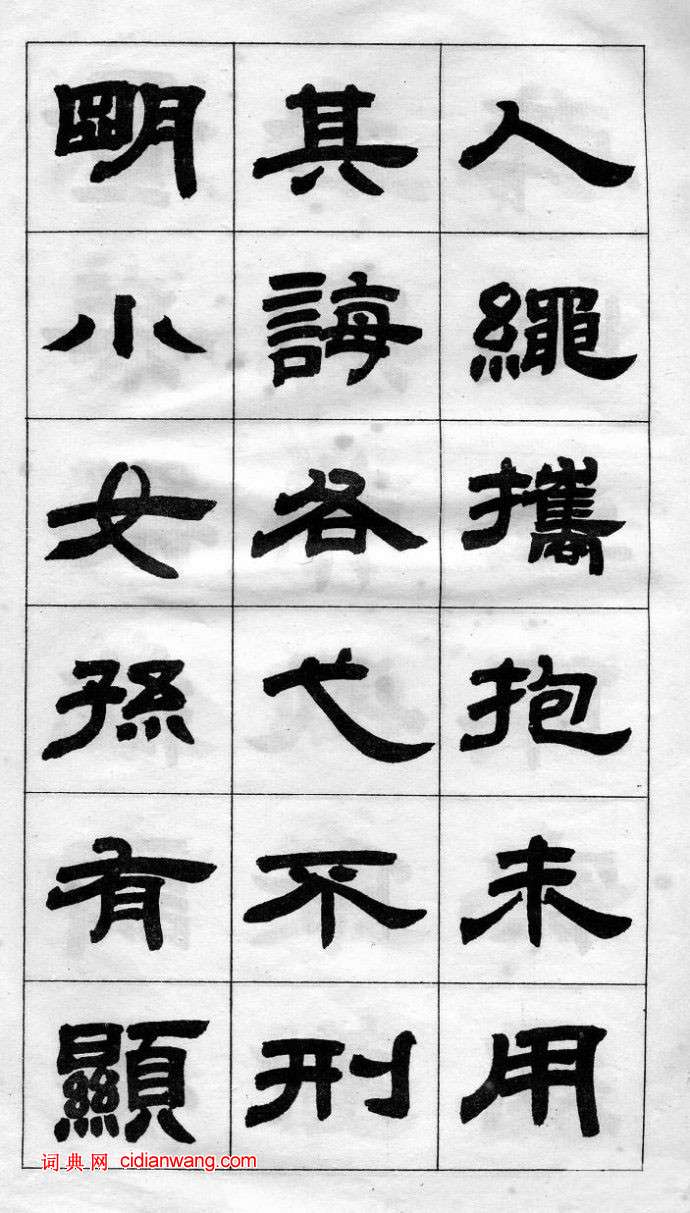 人繩攜抱未用
其誨各弋不刑
明小女孫有顯
词典网 cidianwang.com